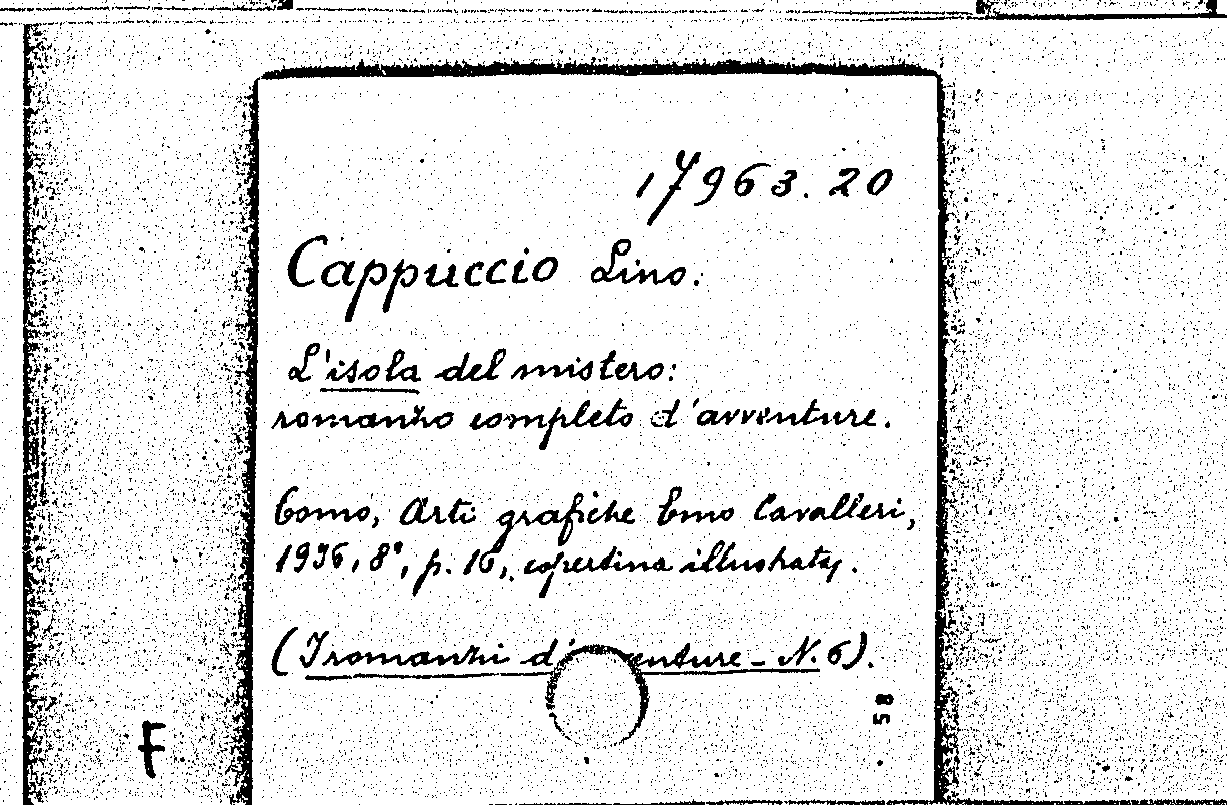 17963.20
Cappuccio Lino.
L'isola del mistero:
romanzo completo d'avventure.
Como, Arti grafiche Emo Cavalleri,
1936, 8°, p. 16, copertina illustrata.
(I romanzi d' enture - N. 6).
58
F